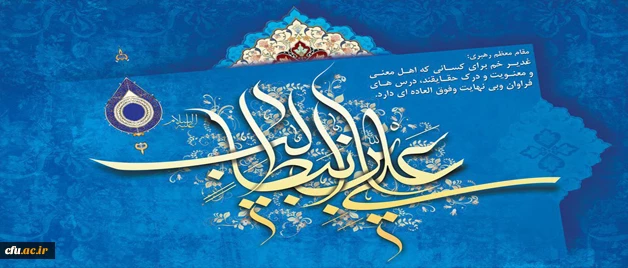 مقام معظم رهبری:
غدیر خم برای کسانی که اهل معنی
و معنویت و درک حقایقند، درس های
فراوان وبی نهایت وفوق العاده ای دارد.
علی بن ابیطالب
علیه السلام
cfu.ac.ir